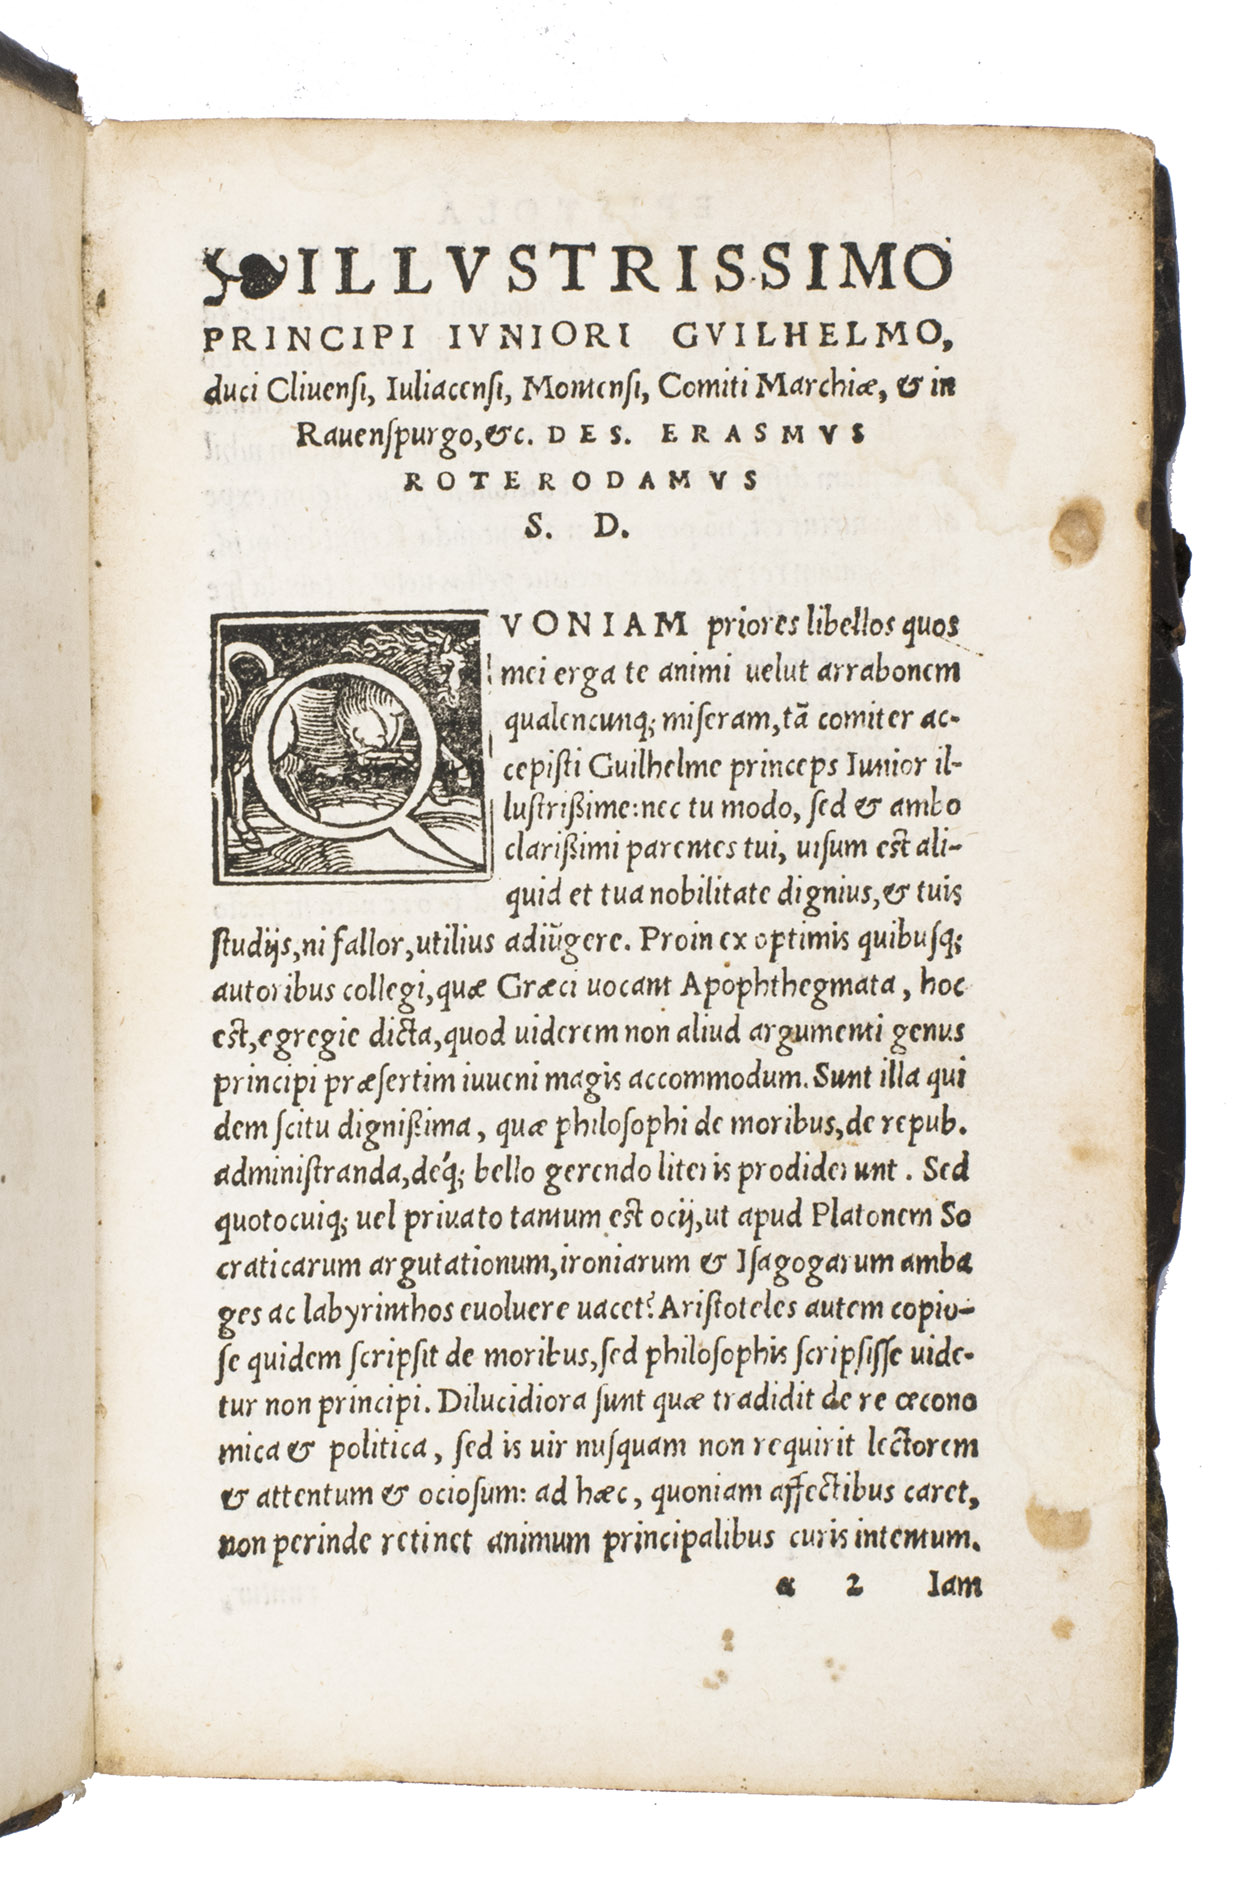 ❧ILLVSTRISSIMO
PRINCIPI IVNIORI GVILHELMO,
duci Cliuensi, Iuliacensi, Montensi, Comiti Marchiæ, & in
Rauenspurgo, &c. DES. ERASMVS
ROTERODAMVS
S. D.
QVONIAM priores libellos quos
mei erga te animi uelut arrabonem
qualencunq; miseram, tã comiter ac-
cepisti Guilhelme princeps Iunior il-
lustrißime: nec tu modo, sed & ambo
clarißimi parentes tui, uisum est ali-
quid et tua nobilitate dignius, & tuis
studijs, ni fallor, utilius adiũgere. Proin ex optimis quibusq;
autoribus collegi, quæ Græci uocant Apophthegmata, hoc
est, egregie dicta, quod uiderem non aliud argumenti genus
principi præsertim iuueni magis accommodum. Sunt illa qui
dem scitu dignißima, quæ philosophi de moribus, de repub.
administranda, de'q; bello gerendo literis prodiderunt. Sed
quotocuiq; uel priuato tantum est ocij, ut apud Platonem So
craticarum argutationum, ironiarum & Isagogarum amba
ges ac labyrinthos euoluere uacet? Aristoteles autem copio-
se quidem scripsit de moribus, sed philosophis scripsisse uide-
tur non principi. Dilucidiora sunt quæ tradidit de re œcono
mica & politica, sed is uir nusquam non requirit lectorem
& attentum & ociosum: ad hæc, quoniam affectibus caret,
non perinde retinet animum principalibus curis intentum.
a 2 Iam